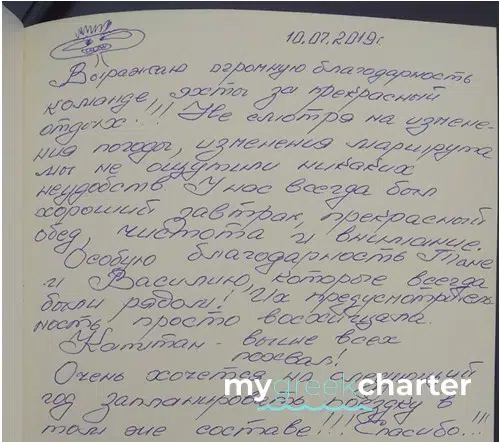 10.07.2019г
Выражаю огромную благодарность
команде яхты за прекрасный
отдых!!! Не смотря на измене-
ния погоды, изменения маршрута
мы не ощутили никаких
неудобств. У нас всегда был
хороший завтрак, прекрасный
обед, чистота и внимание.
Особую благодарность Тане
и Василию, которые всегда
были рядом! Их предусмотритель-
ность просто восхищала.
Капитан - выше всех
похвал!
Очень хочется на следующий
mygreekcharter
год запланировать поездку в
том же составе!!! Спасибо!!!